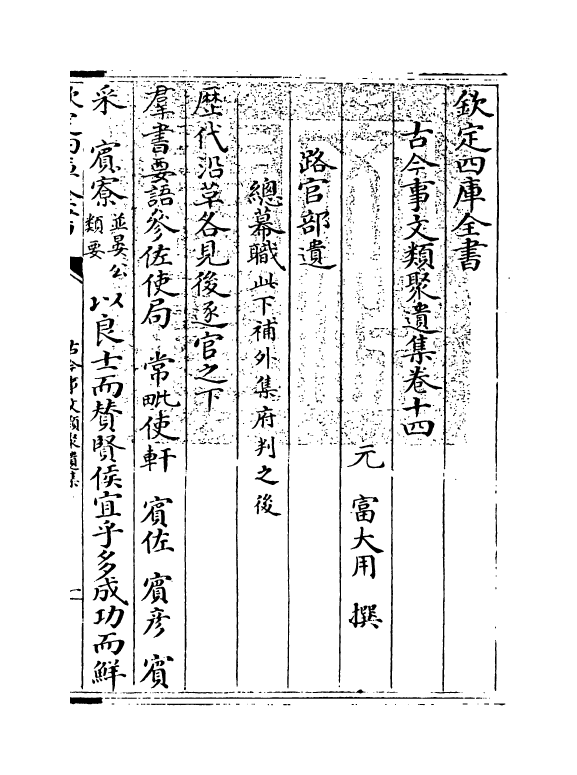 欽定四庫全書
古今事文類聚遺集卷十四
元 富大用 撰
路官部遺
總幕職此下補外集府判之後
歴代沿革各見後逐官之下
羣書要語參佐使局 常毗使軒 賓佐 賓彦 賓
采 賓寮並晏公類要 以良士而賛賢侯宜乎多成功而鮮
古今事文類聚遺集